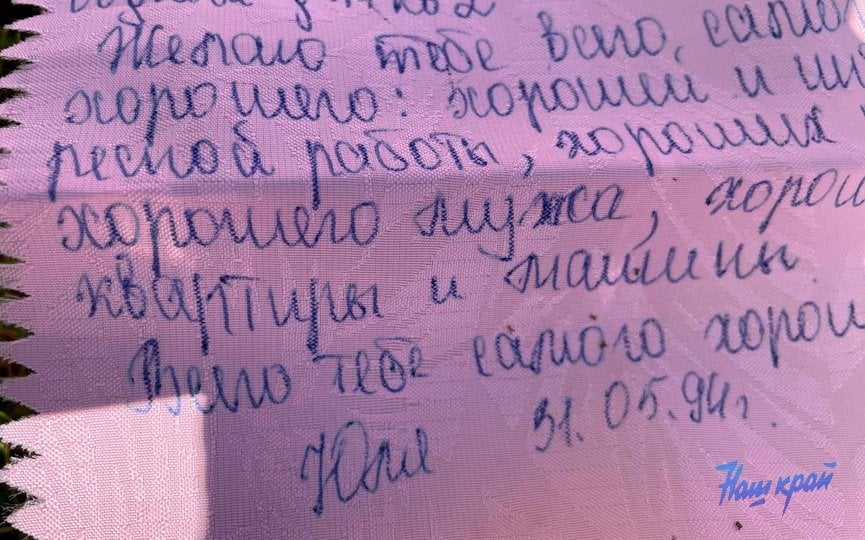 Желаю тебе всего, самого
хорошего: хорошей и инте
ресной работы, хороших
хорошего мужа, хорош
квартиры и машины.
Всего тебе самого хорош
Юля 31.05.94г.
Наш край